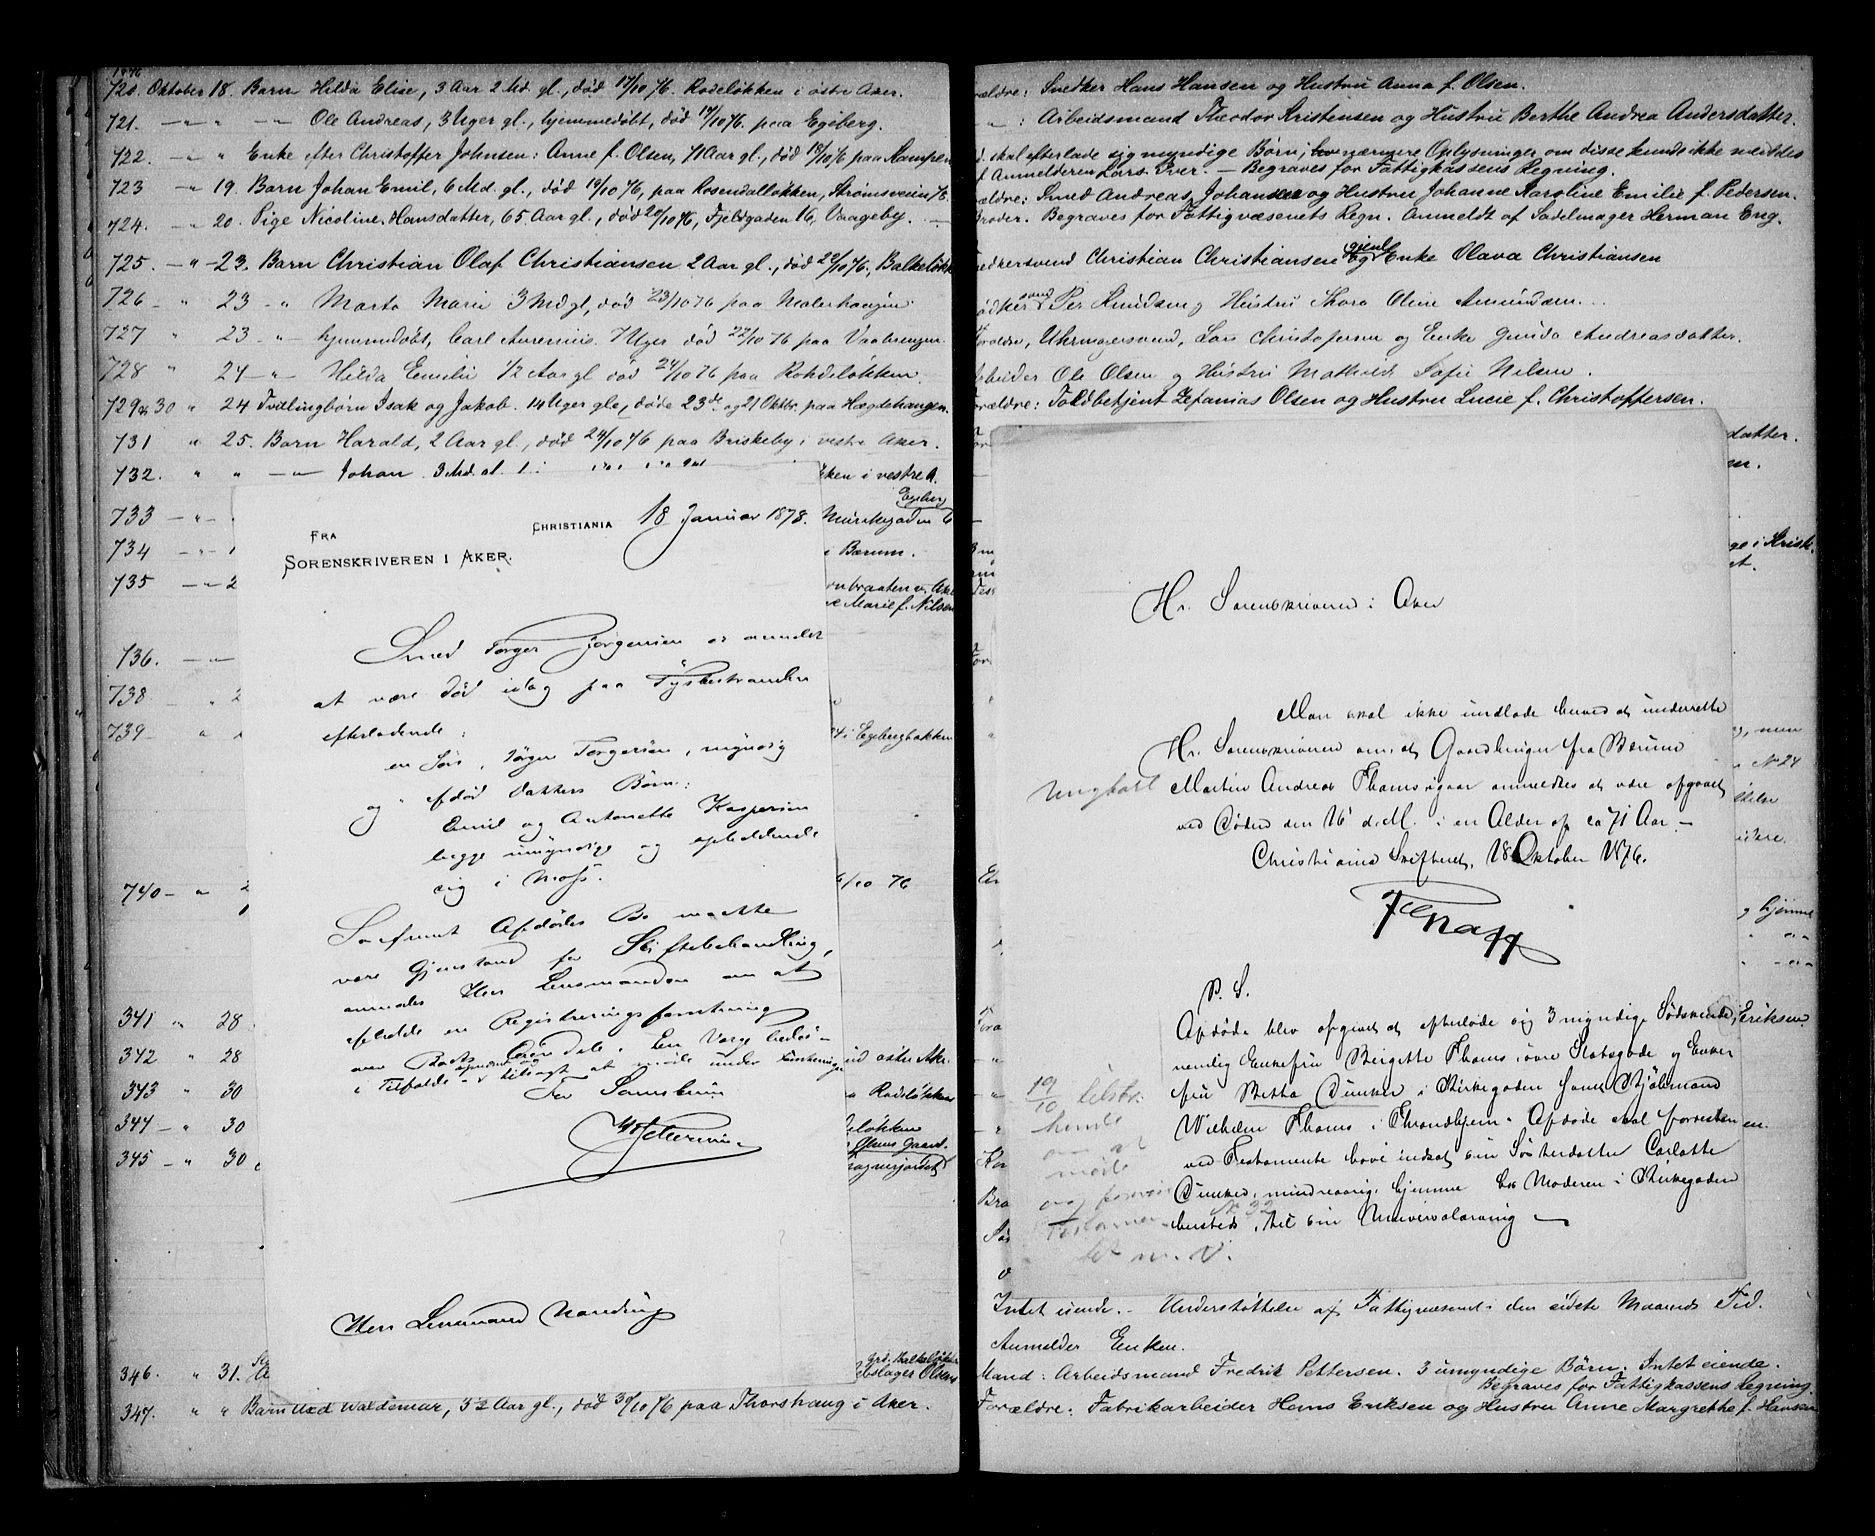 1876
720. Oktober 18. Barn Hilda Elise, 3 Aar 2 Md. gl., død 17/10 76. Rodeløkken i østre Aker.
721. — „ — „ — Ole Andreas, 3 Uger gl., hjemmedøbt, død 17/10 76. paa Egeberg.
722. — „ „ Enke efter Christoffer Johnsen: Anne f. Olsen, 71 Aar gl., død 18/10 76 paa Kampen
723 — „ 19. Barn Johan Emil, 6 Md. gl., død 19/10 76, paa Rosendalløkken, Strømsveien 76.
724. — „ 20. Pige Nicoline Hansdatter, 65 Aar gl., død 20/10 76, Fjeldgaden 16, Vaageby.
725. — „ 23. Barn Christian Olaf Christiansen 2 Aar gl., død 22/10 76, Balkeløkk
726 „ 23 — „ Marta Marie 3 Md gl, død 23/10 76 paa Malerhaugen
727 „ 23 — „ hjemmedøbt, Carl 7 Uger død 22/10 76 paa Vaalerengen
728 „ 24 — „ Hilda Emilie 1/2 Aar gl død 24/10 76 paa Rohdeløkken.
729 & 30 „ 24 Tvillingbørn Isak og Jakob. 14 Uger gle, døde 23de og 21 Oktbr. paa Hægdehaugen.
731 „ 25. Barn Harald, 2 Aar gl., død 24/10 76 paa Briskeby i vestre Aker.
732. „ „ — „ — Johan 3 Md. gl. ken i vestre A.
733 — „ Egeberg
734 — „ Bærum.
735 — „ 2 Marie f. Nilsen
736. — „
738 „ 2
739 — „ i Egebergbakken
740 — „ 2 /10 76
341 „ 28
342 „ 28 østre Ak.
343 „ 30 Rodeløkken
344 — „ 30 løkken
345 — „ 30
346. „ 31. Olsen
347. „ „ Barn Waldemar, 3½ Aar gl., død 30/10 76 paa Thorshaug i Aker.
FRA
SORENSKRIVEREN I AKER.
CHRISTIANIA 18 Januar 1878.
Smed Torger Jørgensen er anmeldt
at være død idag paa Tyskestranden
efterladende:
en Søn, Jørgen Torgersen, myndig
og afdød Datters Børn:
Emil og Antonette Kaspersen
begge umyndige og opholdende
sig i Moss.
Saafremt Afdødes Bo maatte
være Gjenstand for Skiftebehandling,
anmodes Herr Lensmanden om at
afholde en Registreringsforretning
over Boets Eiendele. En Værge bedes
i Tilfælde opnævnt og tilsagt at møde under Forretningen
For Sorenskriveren
Herr Lensmand
rældre: Snedker Hans Hansen og Hustru Anna f. Olsen.
„ : Arbeidsmand Theodor Kristensen og Hustru Berthe Andrea Andersdatter.
d. skal efterlade sig myndige Børn; nærmere Oplysninger om disse kunde ikke meddeles
af Anmelderen Lars Iver. — Begraves for Fattigkassens Regning.
ældre: Smed Andreas Johansen og Hustru Johanne Karoline Emilie f. Pedersen.
Broder. Begraves for Fattigvæsenets Regn. Anmeldt af Sadelmager Herman Eng.
nedkersvend Christian Christiansen og gjenl. Enke Olava Christiansen
ødkersvend Per Knudsen og Hustru Thora Oline Amundsen.
oraldre, Uhrmagersvend, Lars Christofersen og Enke Gunda Andreasdatter.
rbeider Ole Olsen og Hustru Mathilde Sofie Nilsen.
oraldre: Toldbetjent Zefanias Olsen og Hustru Lucie f. Christoffersen.
Hr. Sorenskriveren i Aker
Man skal ikke undlade herved at underrette
Hr. Sorenskriveren om, at Gaardbruger fra Bærum
Martin Andreas Thams igaar anmeldtes at være afgaaet
ved Døden den 16' d. M. i en Alder af ca 71 Aar. —
Christiania Skifteret, 18 Oktober 1876.
Ungkarl
P. S.
Afdøde blev opgivet at efterlade sig 3 myndige Sødskende,
nemlig Enkefru Birgitte Thams i øvre Slotsgade og Enke
fru Betha Dunker i Kirkegaden samt Skjølmand
Wilhelm Thams i Throndhjem. Afdøde skal forresten
ved Testamente have indsat sin Søsterdatter Carlotte
Dunker, mindreaarig, hjemme hos Moderen i Kirkegaden
No 32
hersteds, til sin Universalarving —
19/10 tilstr.
hende
om at
møde
og forevise
Testamen-
tet m. V.
Intet eiende. — Understøttelse af Fattigvæsenet i den sidste Maaneds Tid.
Anmelder Enken.
Mand: Arbeidsmand Fredrik Pettersen. 3 umyndige Børn. Intet eiende.
Begraves for Fattigkassens Regning.
Forældre: Fabrikarbeider Hans Eriksen og Hustru Anne Margrethe f. Hansen